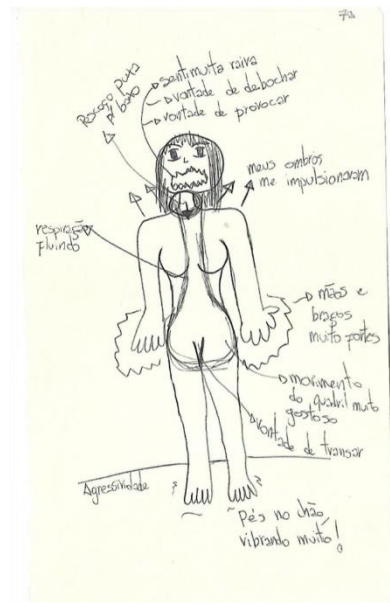 73
sentimuita raiva
vontade de debochar
vontade de provocar
Pescoço puxa
p/ baixo
meus ombros
me impulsionaram
respiração
fluindo
mãos e
braços
muito fortes
movimento
do quadril muito
gostoso
vontade de transar
Agressividade
Pés no chão
vibrando muito!